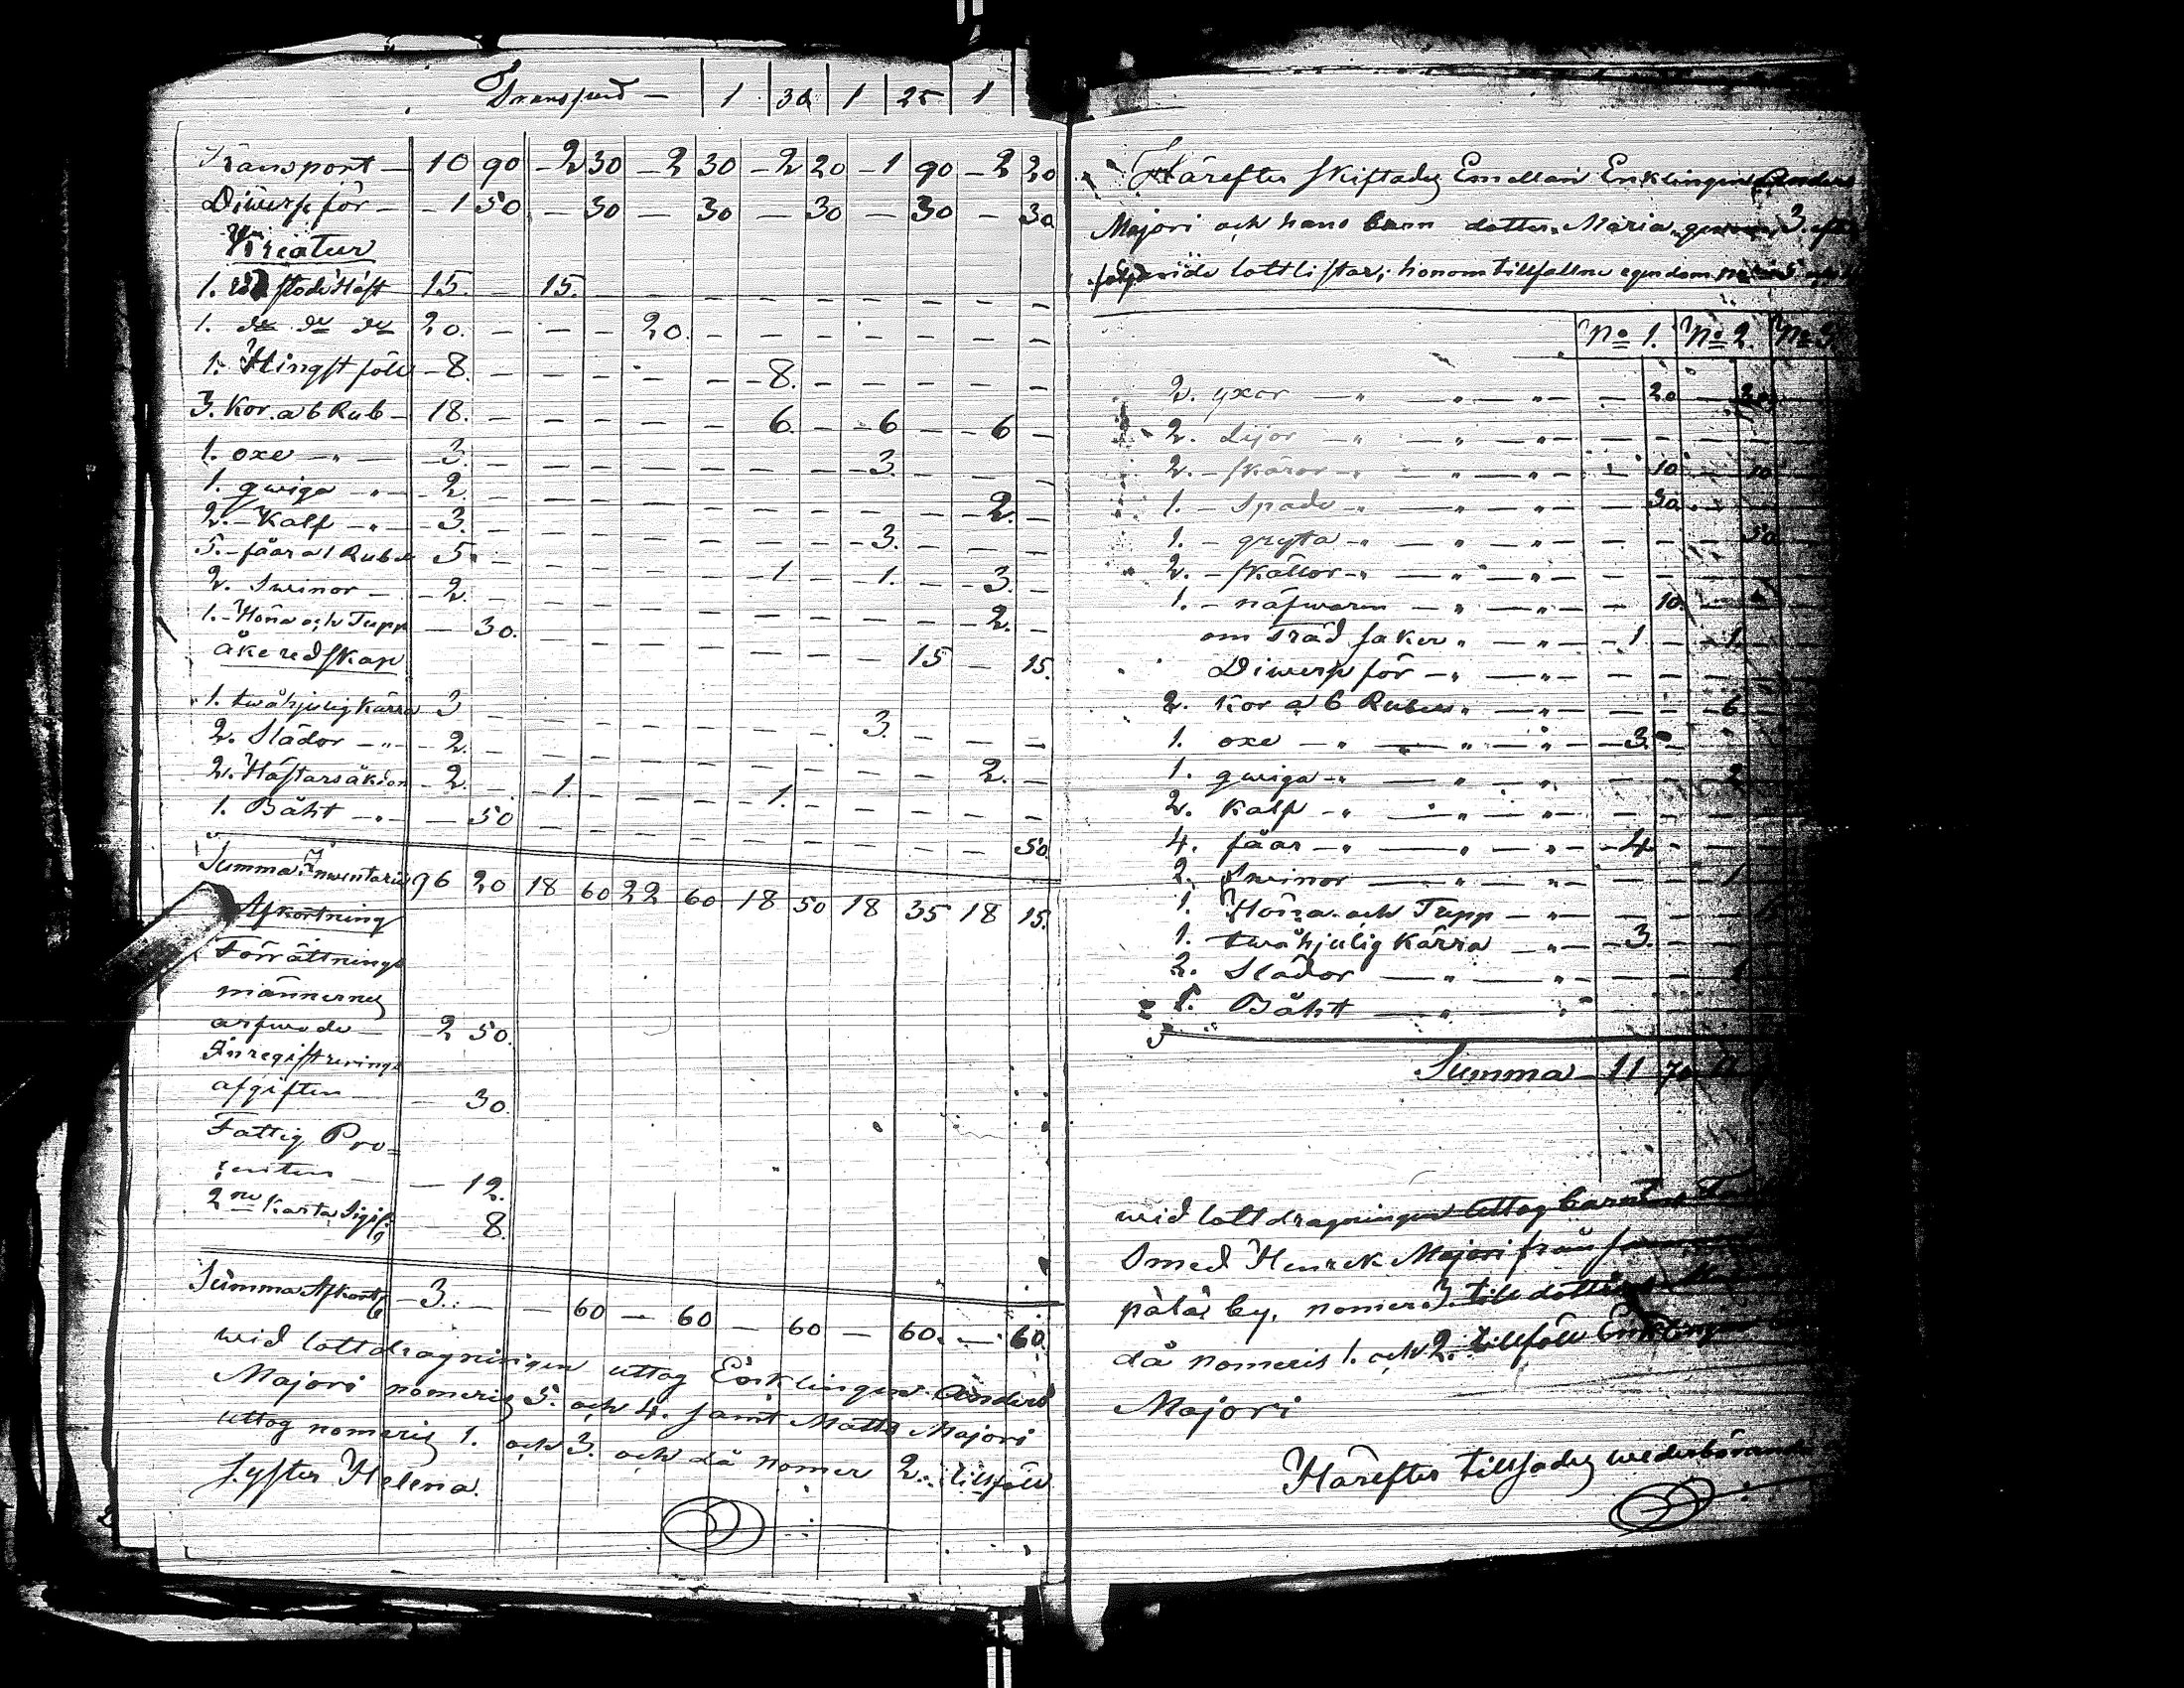 Transport — 1 30 1 25 1
Transport — 10 90 - 2 30 - 2 30 - 2 20 - 1 90 - 2 20
Diverse för — - 1 50 — 30 — 30 — 30 — 30 — 30
Kreatur
1. stodhäst 15. — 15. — — — — — — — —
1. do do do 20. — — — 20. — — — — — —
1. Hingst föll - 8. — — — — — - 8. — — — — —
3. Kor. a 6 Rub — 18. — — — — — 6. — - 6 — - 6 —
1. oxe —"— - 3. — — — — — — — - 3. — — —
1. qwiga —"— - 2. — — — — — — — — — 2. —
2. - Kalf —"— - 3. — — — — — — — - 3. — — —
5. - fåar a 1 Rubel 5. — — — — — - 1 — - 1. — - 3. —
2. Swinor — - 2. — — — — — — — — — - 2. —
1. - Höna och Tupp — 30. — — — — — — — 15 — 15.
åkeredskap
1. twåhjulig Kärra 3 — — — — — — — 3. — — —
2. Slädor —"— - 2. — — — — — — — — — 2. —
2. Hästarsäkion - 2. — - 1. — — — - 1. — — — — —
1. Båht —"— — 50 — — — — — — — — — 50
Summa Inwentarie 96 20 18 60 22 60 18 50 18 35 18 15.
Afkortning
Förrättnings
männernes
arfwode — - 2 50.
Inregistrerings
afgiften — — 30.
Fattig Pro=
centen — — 12.
2ne Karta Sigil 8.
Summa Afkort - 3. — — 60 — 60 — 60 — 60. — 60.
wid lottdragningen uttog Enklingen Anders
Majori nomeris 5. och 4. samt Matts Majori
uttog nomeris 1. och 3. och då nomer 2. tillföll
syster Helena.
Härefter skiftades Emellan Enklingen Anders
Majori och hans barn dotter Maria genom 3
följande lottlistor; honom tillfallne egendom
No 1. No 2. No 3.
2. yxor —"— —"—"— — 20 — 20
2. Lijor —"— —"—"— — — — —
2. - skäror —"— —"—"— — 10 — 10
1. - Spade —"— —"—"— — 30. — —
1. - gryta —"— —"—"— — — — 50
2. - skållor —"— —"—"— — — — —
1. - näfwaren —"—"— — 10. —
om träd saker "—"— - 1. — - 1.
Diwerse för —"— —"— — — — —
2. Kor a 6 Rubel "—"— — — - 6
1. oxe —"— —"—"— - 3. — —
1. qwiga —"— —"—"— — — - 2
2. Kalf —"— —"—"— — — —
4. fåar —"— —"—"— - 4. — —
2. Swinor — —"—"— — — - 1
1. Höna och Tupp —"— — — —
1. twåhjulig Kärra —"— - 3. — —
2. Slädor — —"—"— — —
1. Båht — —"—
Summa — 11 70
wid lottdragningen uttog barnets
Smed Henrek Majori från
pälä by. nomer 3. till dottren
då nomeris 1. och 2. tillföll Enklingen
Majori
Härefter tillsades wederbörande